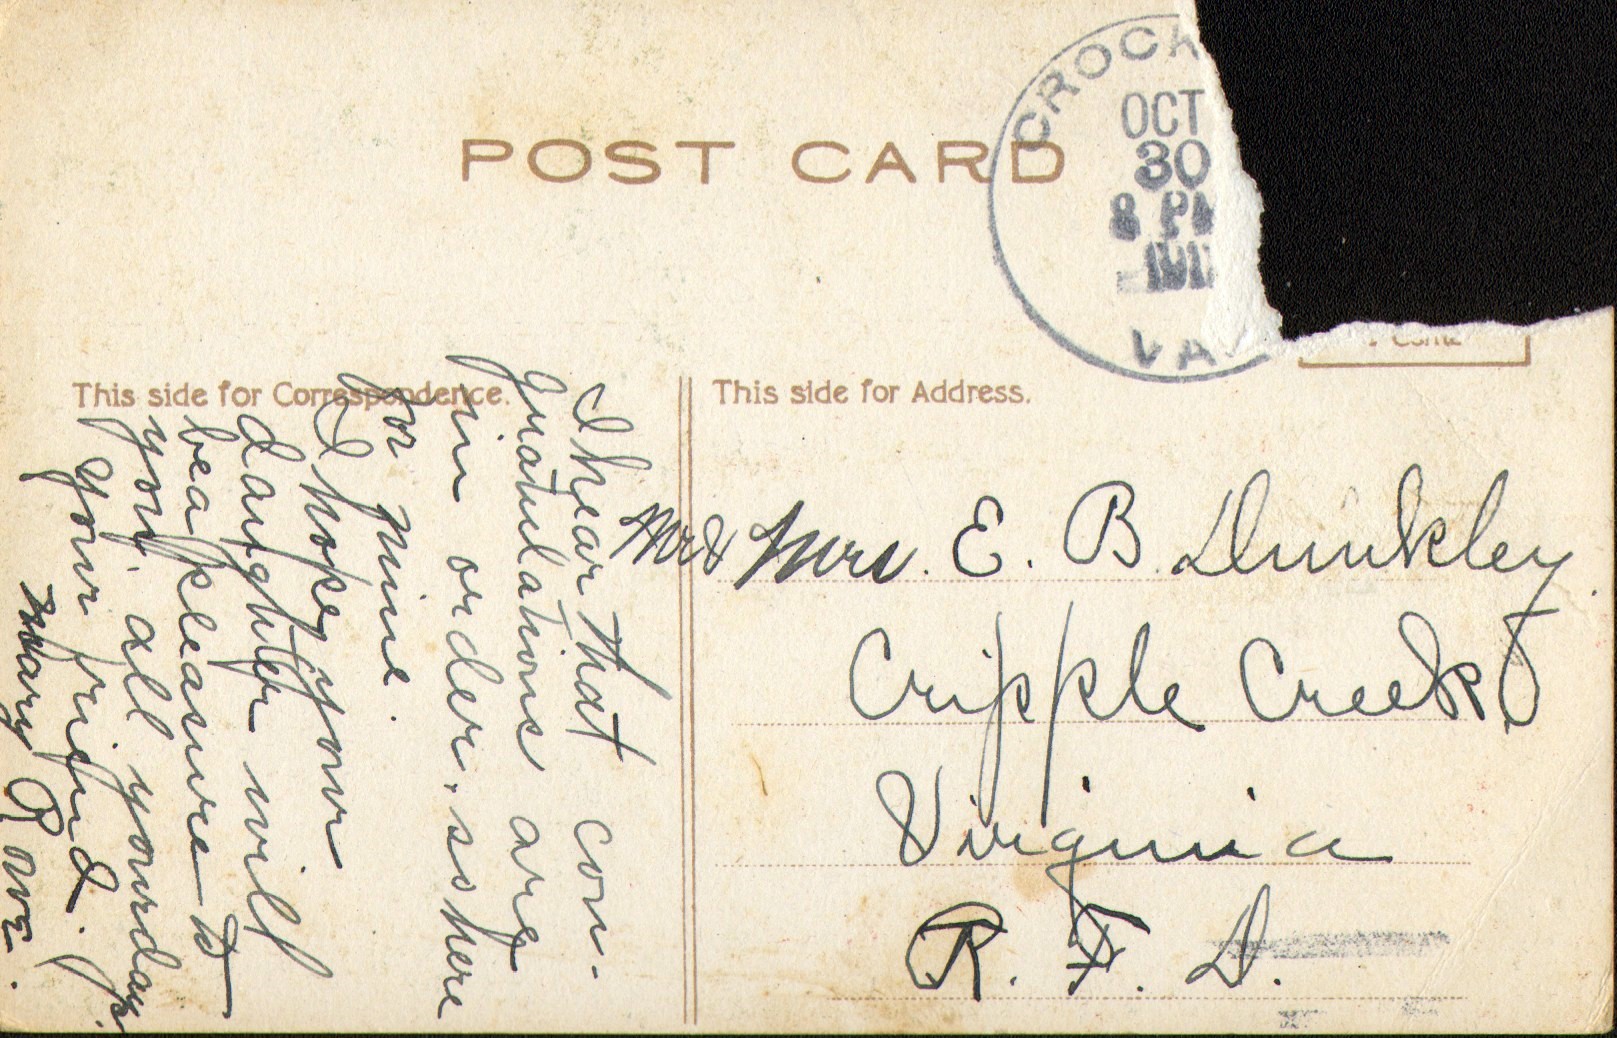 POST CARD
CROCK
OCT
30
8 PM
191
VA
This side for Correspondence.
This side for Address.
I hear that con-
gratulations are
in order, so here
for mine.
I hope your
daughter will
be a pleasure to
you all your days.
Your friend.
Mary Rowe.
Mr & Mrs. E. B. Dunkley
Cripple Creek,
Virginia
R. F. D.